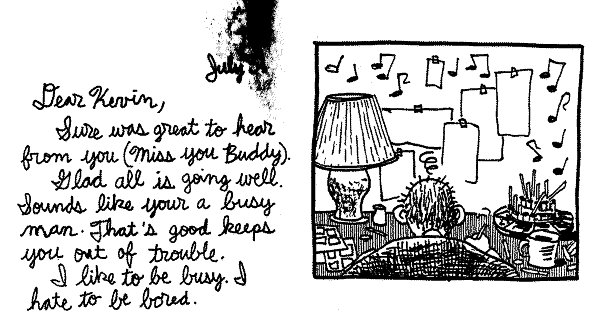 July
Dear Kevin,
Sure was great to hear
from you (Miss you Buddy).
Glad all is going well.
Sounds like your a busy
man. That's good keeps
you out of trouble.
I like to be busy. I
hate to be bored.